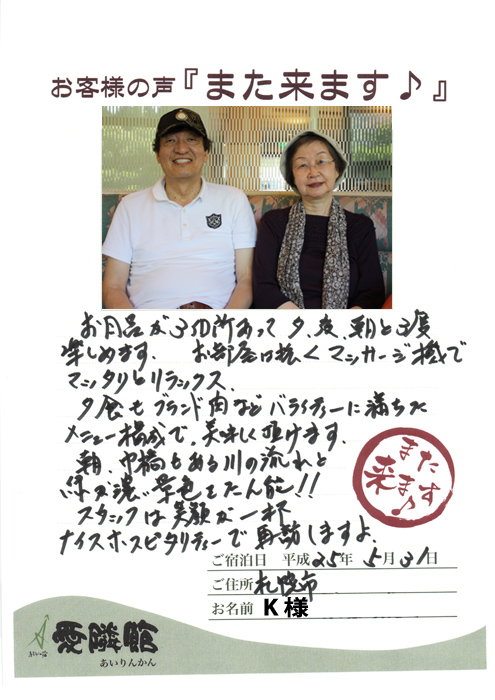 お客様の声『また来ます♪』
お風呂が3カ所あって夕、夜、朝と3度
楽しめます。 お部屋は広くマッサージ機で
マッタリとリラックス、
夕食もブランド肉などバライティーに満ちた
メニュー構成で、美味しく頂けます。
朝、吊橋もある川の流れと
緑が濃い景色をたん能!!
スタッフは笑顔が一杯
ナイスホスピタリティーで再訪しますよ。
また
来ます♪
ご宿泊日 平成25年5月31日
ご住所 札幌市
お名前 K様
愛隣館
あいりんかん